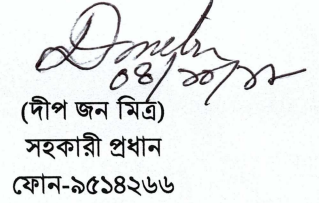 (দীপ জন মিত্র)
সহকারী প্রধান
ফোন-৯৫১৪২৬৬